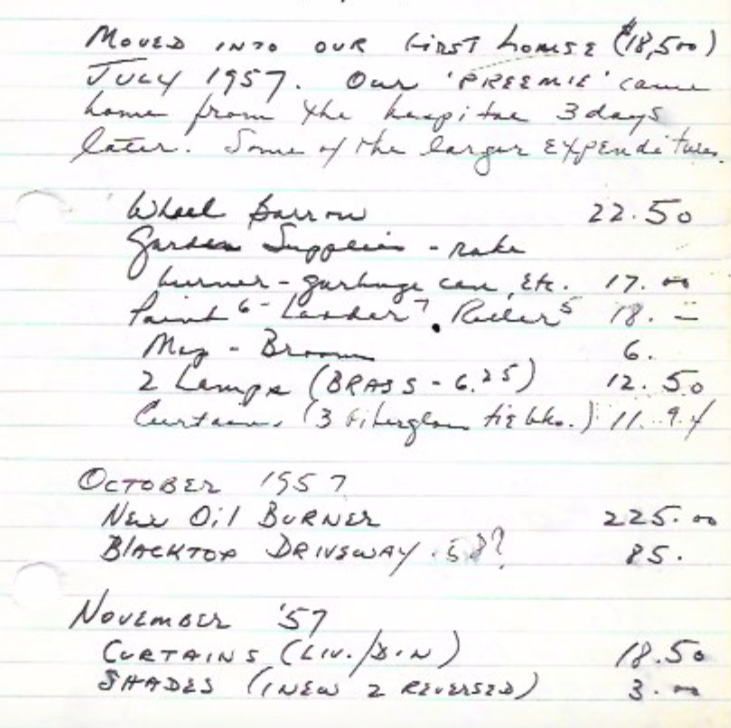 MOVED INTO OUR FIRST HOUSE ($18,500)
JULY 1957. OUR 'PREEMIE' came
home from the hospital 3 days
later. Some of the larger EXPENDITURES.
Wheel Barrow 22.50
Garden Supplies - rake
burner - garbage can, Etc. 17.00
Paint 6 - Ladder 7, Roller 5 18. -
Mop - Broom 6.
2 Lamps (BRASS - 6.25) 12.50
Curtains (3 fiberglass tie bks.) 11.94
OCTOBER 1957
NEW OIL BURNER 225.00
BLACKTOP DRIVEWAY 58? 85.
NOVEMBER '57
CURTAINS (LIV./DIN) 18.50
SHADES (1 NEW 2 REVERSED) 3.00